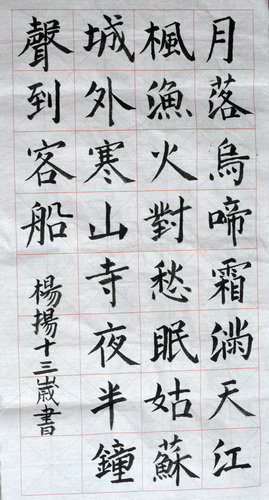 月落烏啼霜滿天江
楓漁火對愁眠姑蘇
城外寒山寺夜半鐘
聲到客船
楊揚十三歲書